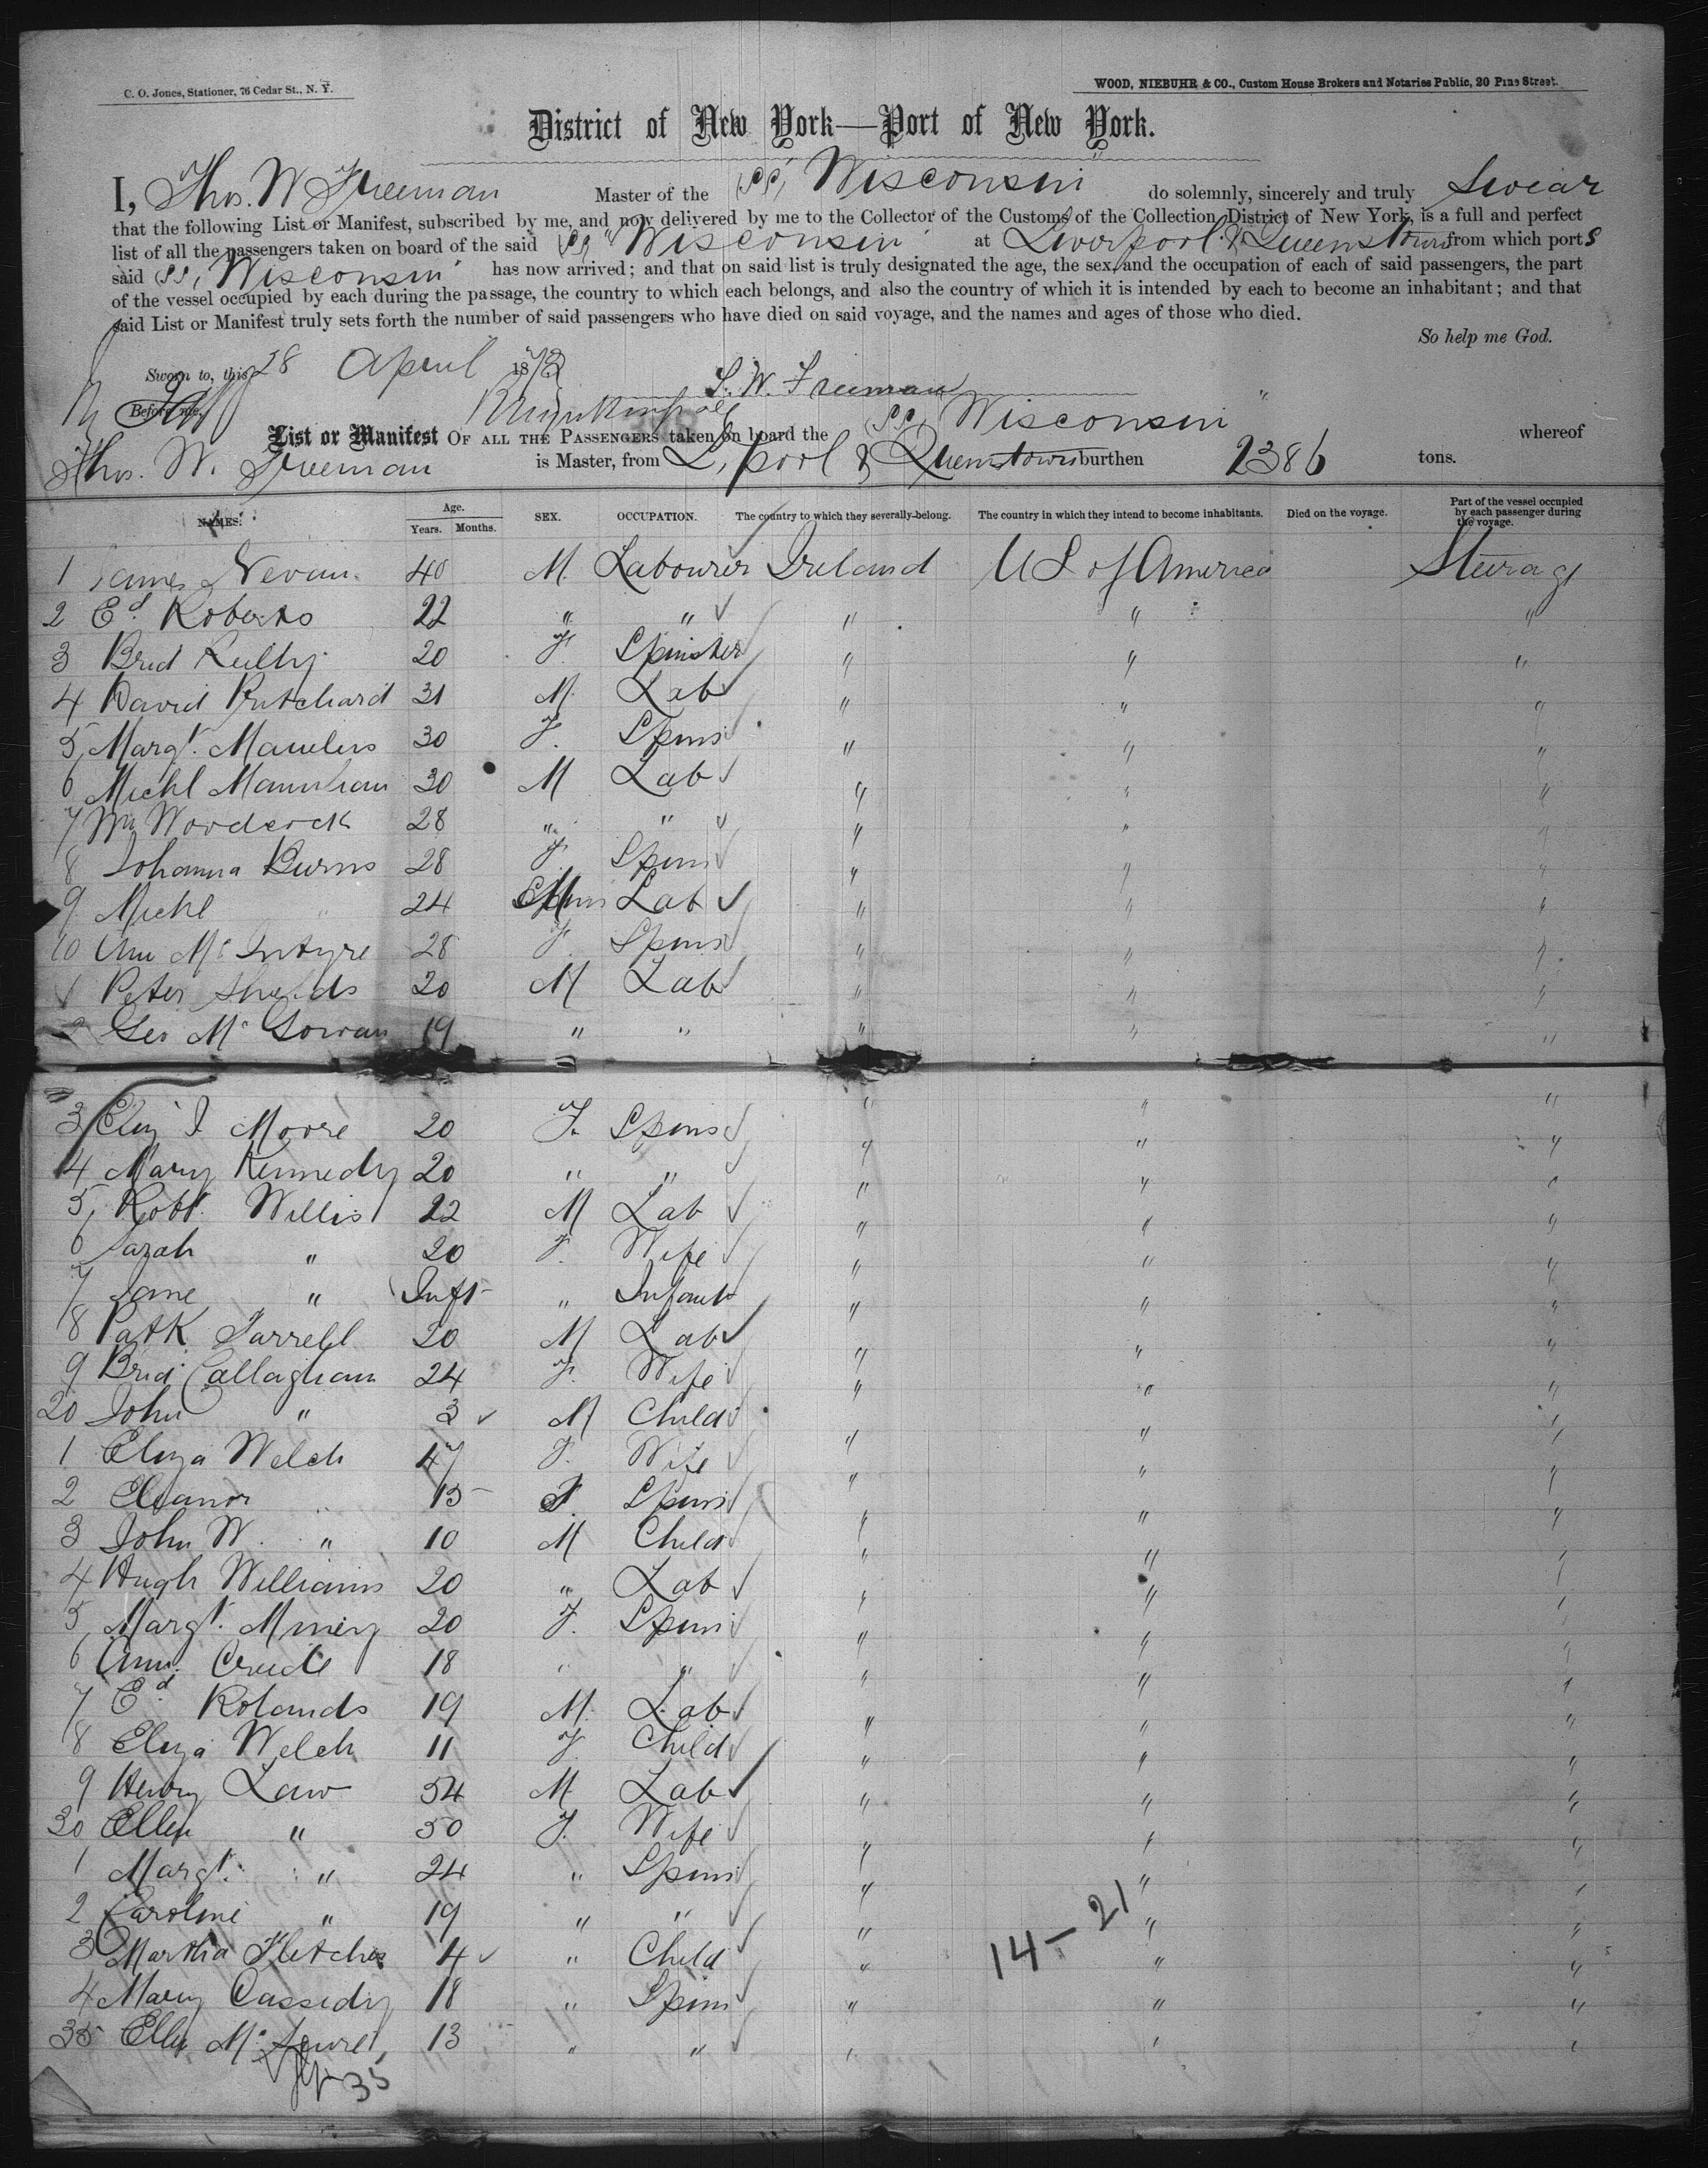 C. O. Jones, Stationer, 76 Cedar St., N. Y.
WOOD, NIEBUHR & CO., Custom House Brokers and Notaries Public, 20 Pine Street.
District of New York—Port of New York.
I, Thos. W Freeman Master of the SS, Wisconsin do solemnly, sincerely and truly Swear
that the following List or Manifest, subscribed by me, and now delivered by me to the Collector of the Customs of the Collection District of New York, is a full and perfect
list of all the passengers taken on board of the said SS "Wisconsin" at Liverpool & Queenstown from which ports
said SS, Wisconsin has now arrived; and that on said list is truly designated the age, the sex, and the occupation of each of said passengers, the part
of the vessel occupied by each during the passage, the country to which each belongs, and also the country of which it is intended by each to become an inhabitant; and that
said List or Manifest truly sets forth the number of said passengers who have died on said voyage, and the names and ages of those who died.
So help me God.
Sworn to, this 28 April 187
T. W. Freeman
Before me,
List or Manifest OF ALL THE PASSENGERS taken on board the SS, Wisconsin" whereof
Thos. W. Freeman is Master, from L'pool & Queenstown burthen 2386 tons.
NAMES. Age. Years. Months. SEX. OCCUPATION. The country to which they severally belong. The country in which they intend to become inhabitants. Died on the voyage. Part of the vessel occupied by each passenger during the voyage.
1 James Nevan 40 M. Labourer Ireland US of America Steerage
2 Ed. Roberts 22 " " " " "
3 Brid Reilly 20 F. Spinster " " "
4 David Pritchard 31 M. Lab " " "
5 Margt. 30 F. Spins " " "
6 Michl 30 M Lab " " "
7 Wm Woodcock 28 " " " " "
8 Johanna Burns 28 F. Spins " " "
9 Michl " 24 M Lab " " "
10 Ann McIntyre 28 F. Spins " " "
1 Peter Shields 20 M Lab " " "
2 Geo McGowan 19 " " " " "
3 Eliz J Moore 20 F. Spins " " "
4 Mary Kennedy 20 " " " " "
5 Robt. Willis 22 M Lab " " "
6 Sarah " 20 F. Wife " " "
7 Jane " Inft " Infant " " "
8 Patk Farrell 20 M Lab " " "
9 Brid. Callaghan 24 F. Wife " " "
20 John " 3 M Child " " "
1 Eliza Welch 47 F. Wife " " "
2 Eleanor " 15 F. Spins " " "
3 John W. " 10 M Child " " "
4 Hugh Williams 20 " Lab " " "
5 Margt. 20 F. Spins " " "
6 Ann 18 " " " " "
7 Ed Rolands 19 M. Lab " " "
8 Eliza Welch 11 F. Child " " "
9 Henry Law 54 M. Lab " " "
30 Ellen " 50 F. Wife " " "
1 Margt. " 24 " Spins " " "
2 Caroline " 19 " " " " "
3 Martha Fletcher 4 " Child " " "
4 Mary Cassidy 18 " Spins " " "
35 Ellen 13 " " " " "
14-21
35